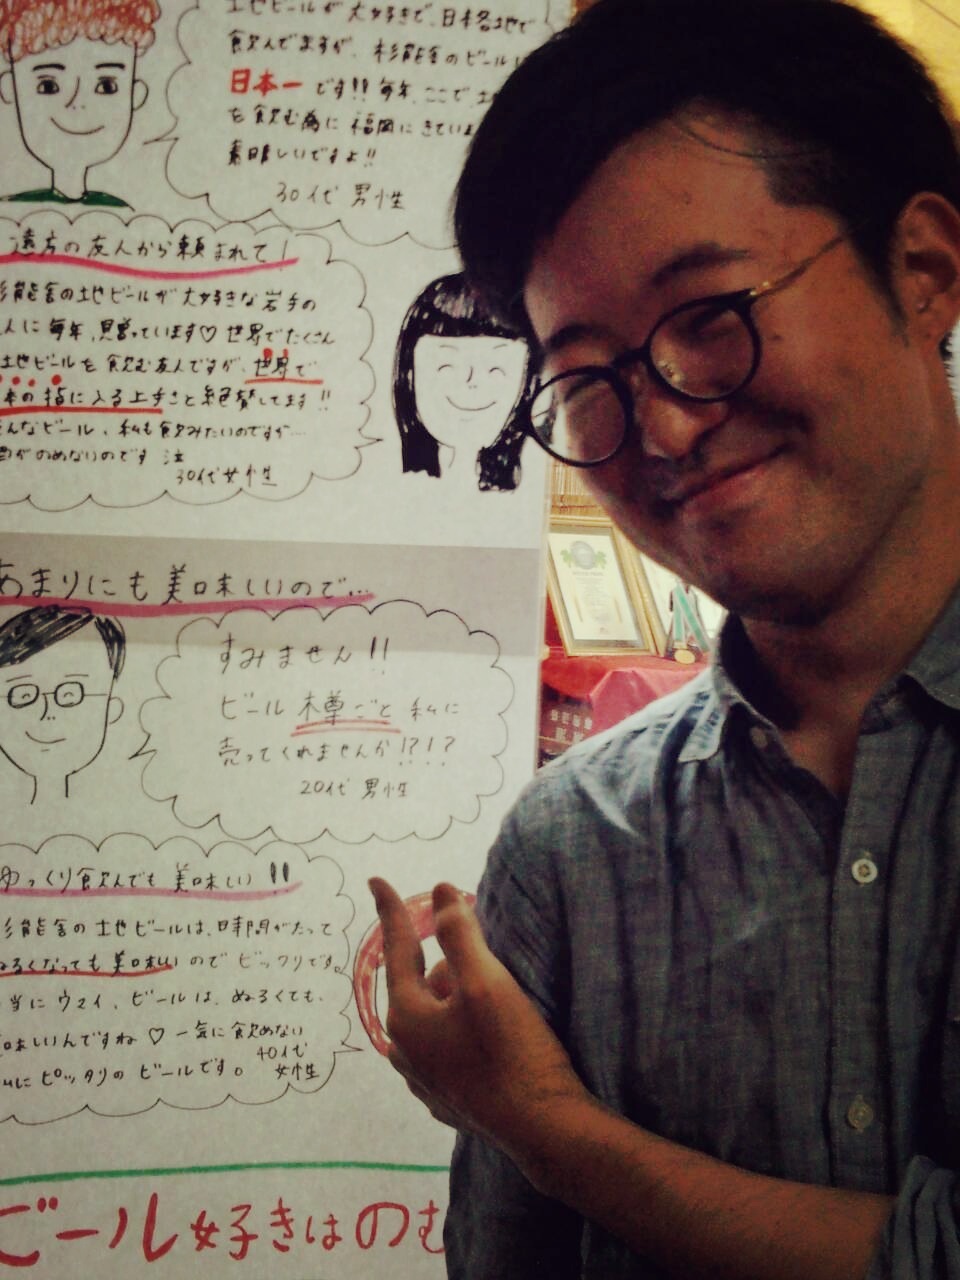 地ビールが大好きで、日本各地で
飲んでますが、杉能舎のビールは
日本一です!!毎年、ここで、
を飲む為に福岡にきてい
素晴しいですよ!!
30代 男性
遠方の友人から頼まれて!
杉能舎の地ビールが大好きな岩手の
人に毎年、買っています♡世界でたくさん
地ビールを飲む友人ですが、世界で
本の指に入る上手さと絶賛してます!!
そんなビール、私も飲みたいのですが…
のめないのです 注
30代女性
あまりにも美味しいので…
すみません!!
ビール樽ごと私に
売ってくれませんか!?!?
20代 男性
ゆっくり飲んでも美味しい!!
杉能舎の地ビールは、時間がたって
ぬるくなっても美味しいのでビックリです。
当にウマイ、ビールは、ぬるくても、
味しいんですね♡一気に飲めない
私にピッタリのビールです。
40代
女性
ビール好きはのむ